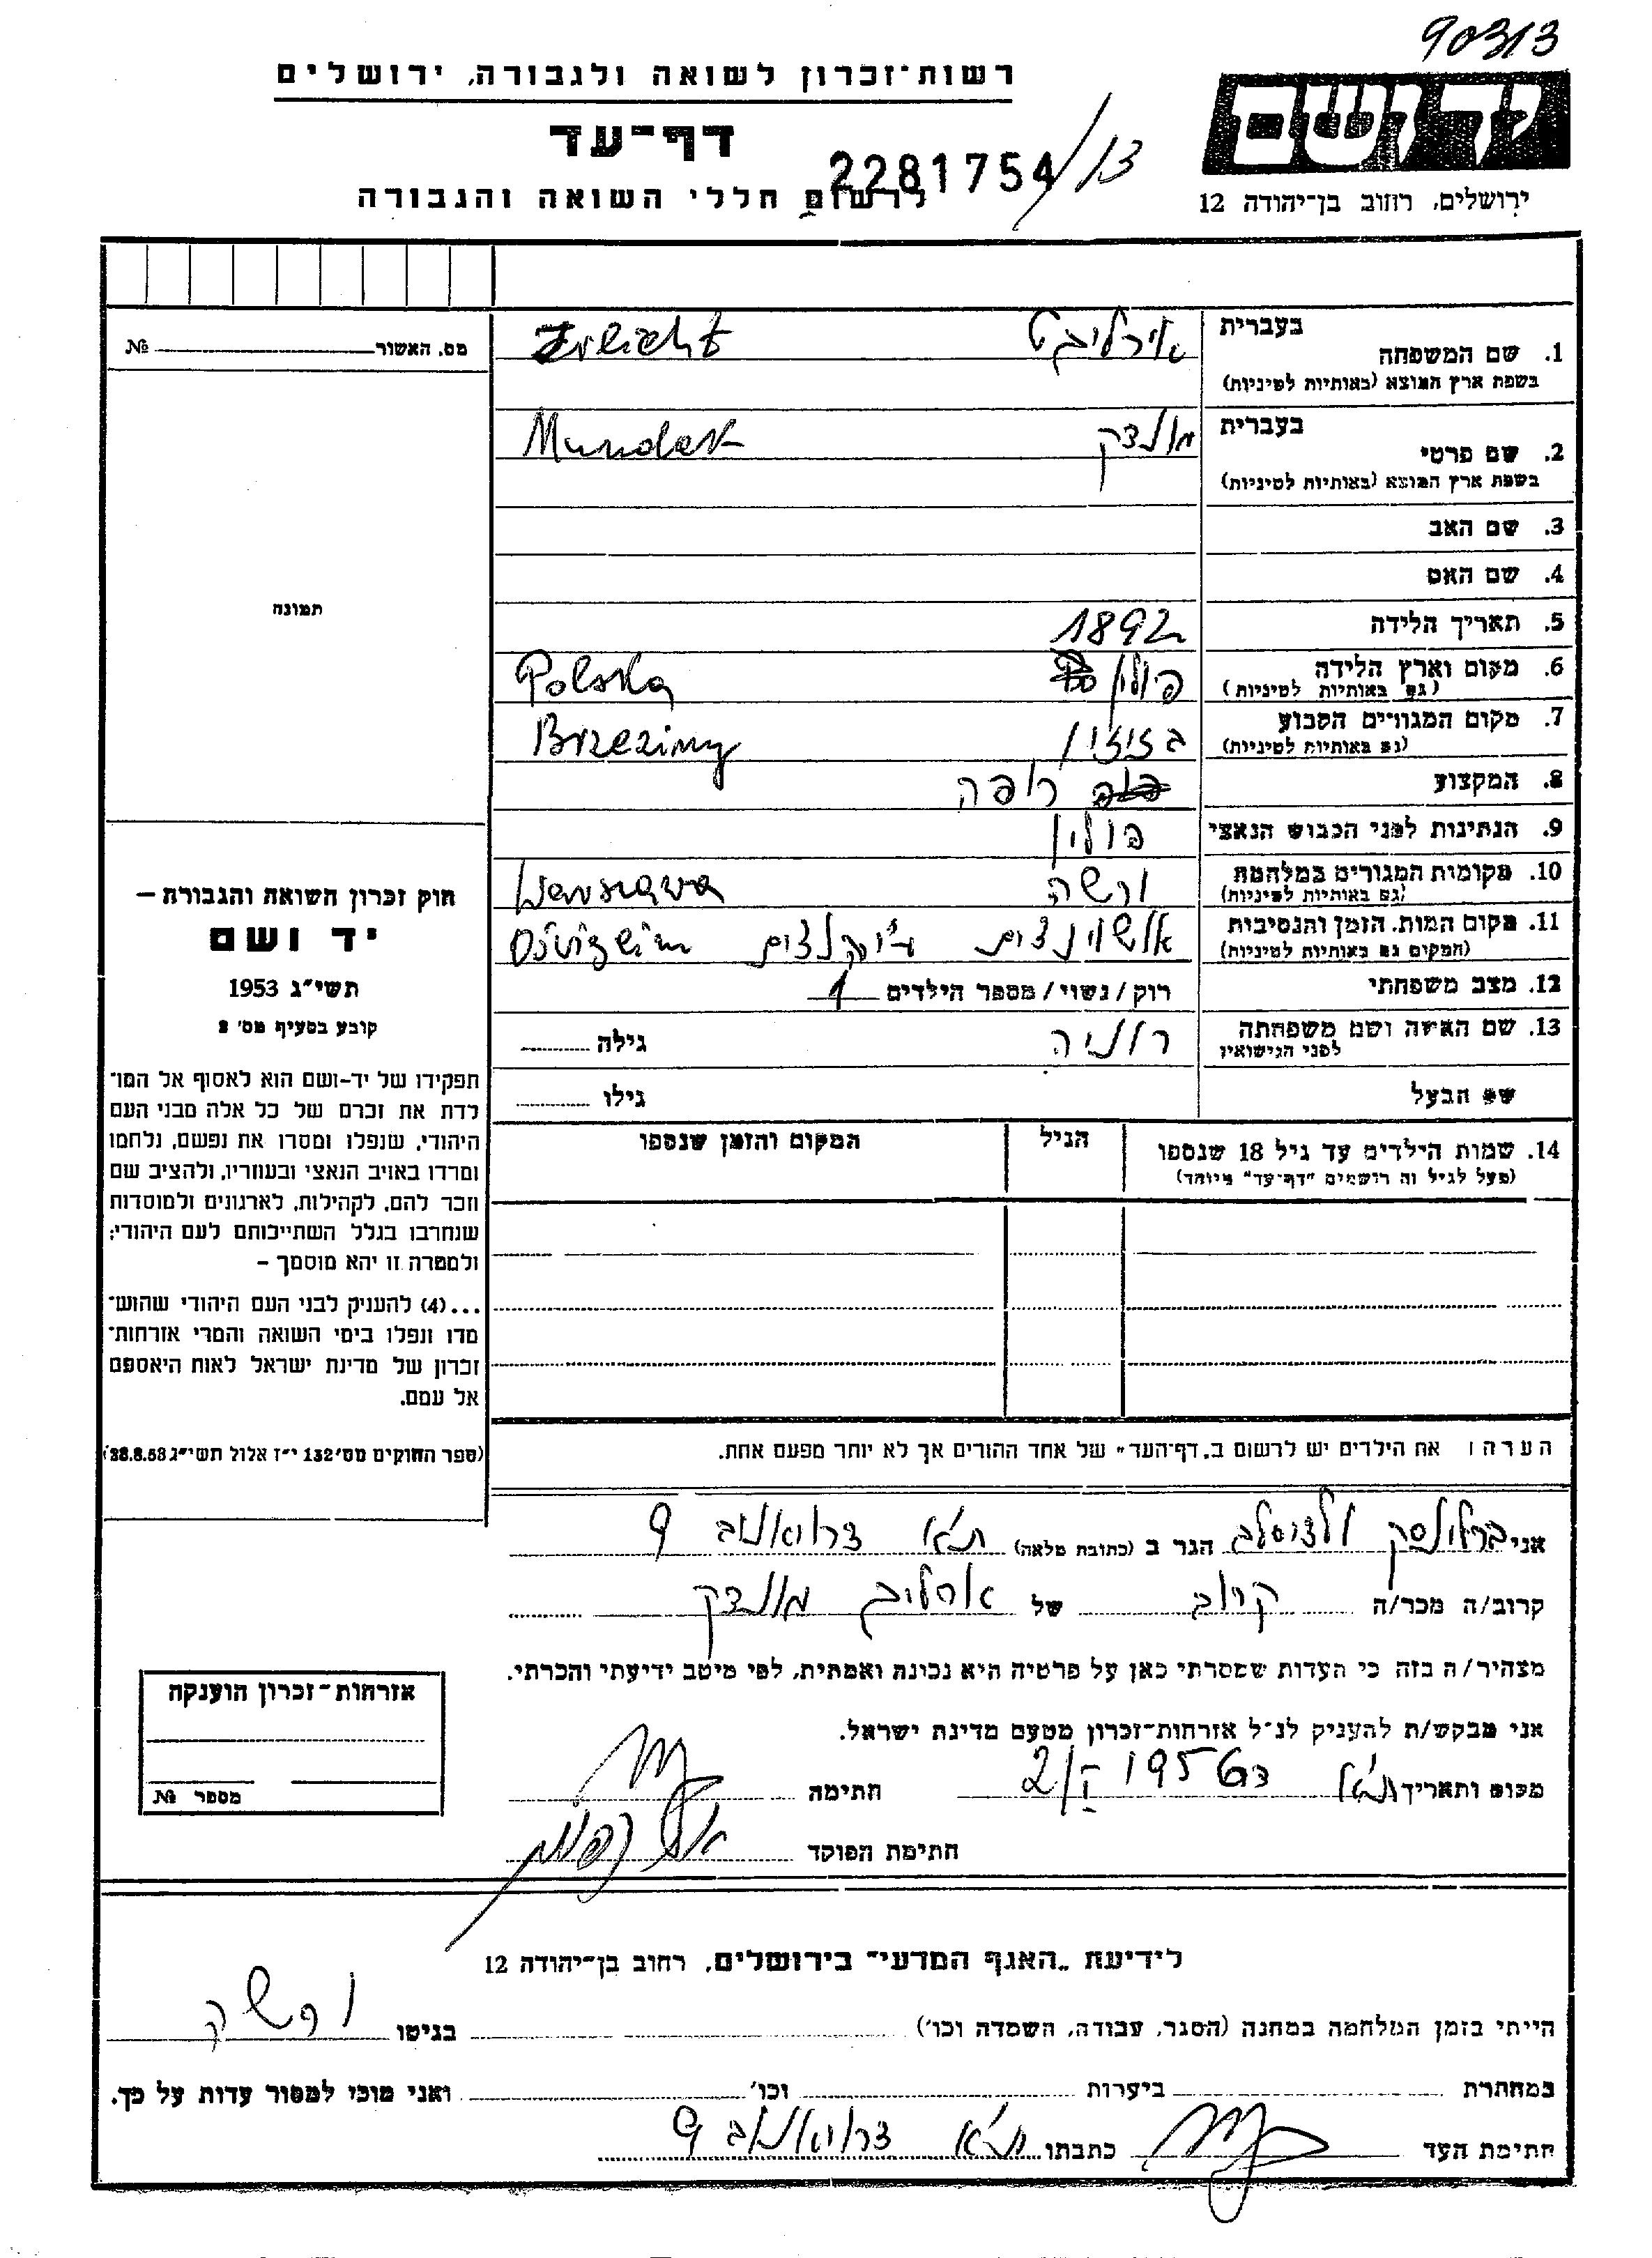 90313
רשות־זכרון לשואה ולגבורה, ירושלים
ידושם
דף־עד
2281754/13
לרשום חללי השואה והגבורה
ירושלים, רחוב בן־יהודה 12
מס. האשור № 
1. שם המשפחה בעברית
אירליכט Erlicht
בשפת ארץ המוצא (באותיות לטיניות)
2. שם פרטי בעברית
מונדק Mundek
בשפת ארץ המוצא (באותיות לטיניות)
3. שם האב
4. שם האם
תמונה
5. תאריך הלידה 1892
6. מקום וארץ הלידה פולין Polska
(גם באותיות לטיניות)
7. מקום המגורים הקבוע Brzeziny
(גם באותיות לטיניות)
8. המקצוע רופה
9. הנתינות לפני הכבוש הנאצי פולין
10. מקומות המגורים במלחמה ורשה Warszawa
(גם באותיות לטיניות)
11. מקום המות, הזמן והנסיבות
(המקום גם באותיות לטיניות)
12. מצב משפחתי רוק/נשוי/מספר הילדים 1
13. שם האשה ושם משפחתה רוניה גילה
לפני הנישואין
שם הבעל גילו
14. שמות הילדים עד גיל 18 שנספו הגיל המקום והזמן שנספו
(מעל לגיל זה רושמים "דף־עד" מיוחד)
חוק זכרון השואה והגבורה –
יד ושם
תשי״ג 1953
קובע בסעיף מס׳ 2
תפקידו של יד-ושם הוא לאסוף אל המו־
לדת את זכרם של כל אלה מבני העם
היהודי, שנפלו ומסרו את נפשם, נלחמו
ומרדו באויב הנאצי ובעוזריו, ולהציב שם
וזכר להם, לקהילות, לארגונים ולמוסדות
שנחרבו בגלל השתייכותם לעם היהודי;
ולמטרה זו יהא מוסמך –
...(4) להעניק לבני העם היהודי שהוש־
מדו ונפלו בימי השואה והמרי אזרחות־
זכרון של מדינת ישראל לאות היאספם
אל עמם.
(ספר החוקים מס׳ 132 י״ז אלול תשי״ג 28.8.53)
הערה: את הילדים יש לרשום ב„דף־העד" של אחד ההורים אך לא יותר מפעם אחת.
אני הגר ב (כתובת מלאה) ת״א דרויאנוב 9
קרוב/ה מכר/ה קרוב של ארליך מונדק
מצהיר/ה בזה כי העדות שמסרתי כאן על פרטיה היא נכונה ואמתית, לפי מיטב ידיעתי והכרתי.
אני מבקש/ת להעניק לנ״ל אזרחות־זכרון מטעם מדינת ישראל.
מקום ותאריך ת״א חתימה
חתימת הפוקד
אזרחות־זכרון הוענקה
מספר №
לידיעת „האגף המדעי" בירושלים, רחוב בן־יהודה 12
הייתי בזמן המלחמה במחנה (הסגר, עבודה, השמדה וכו׳) בגיטו ורשה
במחתרת ביערות וכו׳ ואני מוכן למסור עדות על כך.
חתימת העד כתבתו ת״א דרויאנוב 9